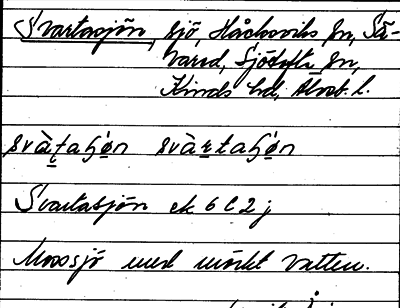 Svartasjön, sjö, Håcksviks sn, Sä-
vared, Sjötofta sn,
Kinds hd, Älvsb. l.
svàṯahö̱n svàṟtahö̱n
Svartasjön ek 6 l 2 j
Mossjö med mörkt vatten.